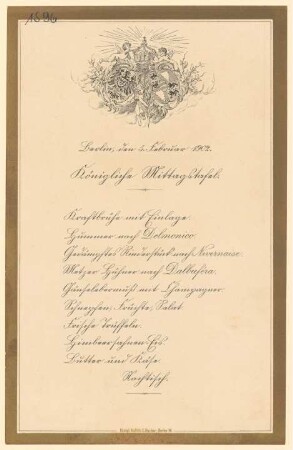 1896
Berlin, den 5. Februar 1902.
Königliche Mittagstafel.
Kraftbrühe mit Einlage
Hummer nach Delmonico
Gedämpftes Rinderstück nach Nivernaise
Metzer Hühner nach
Gänselebermuß mit Champagner
Schnepfen, Früchte, Salat
Frische Trüffeln.
Himbeersahnen-Eis.
Butter und Käse
Nachtisch.